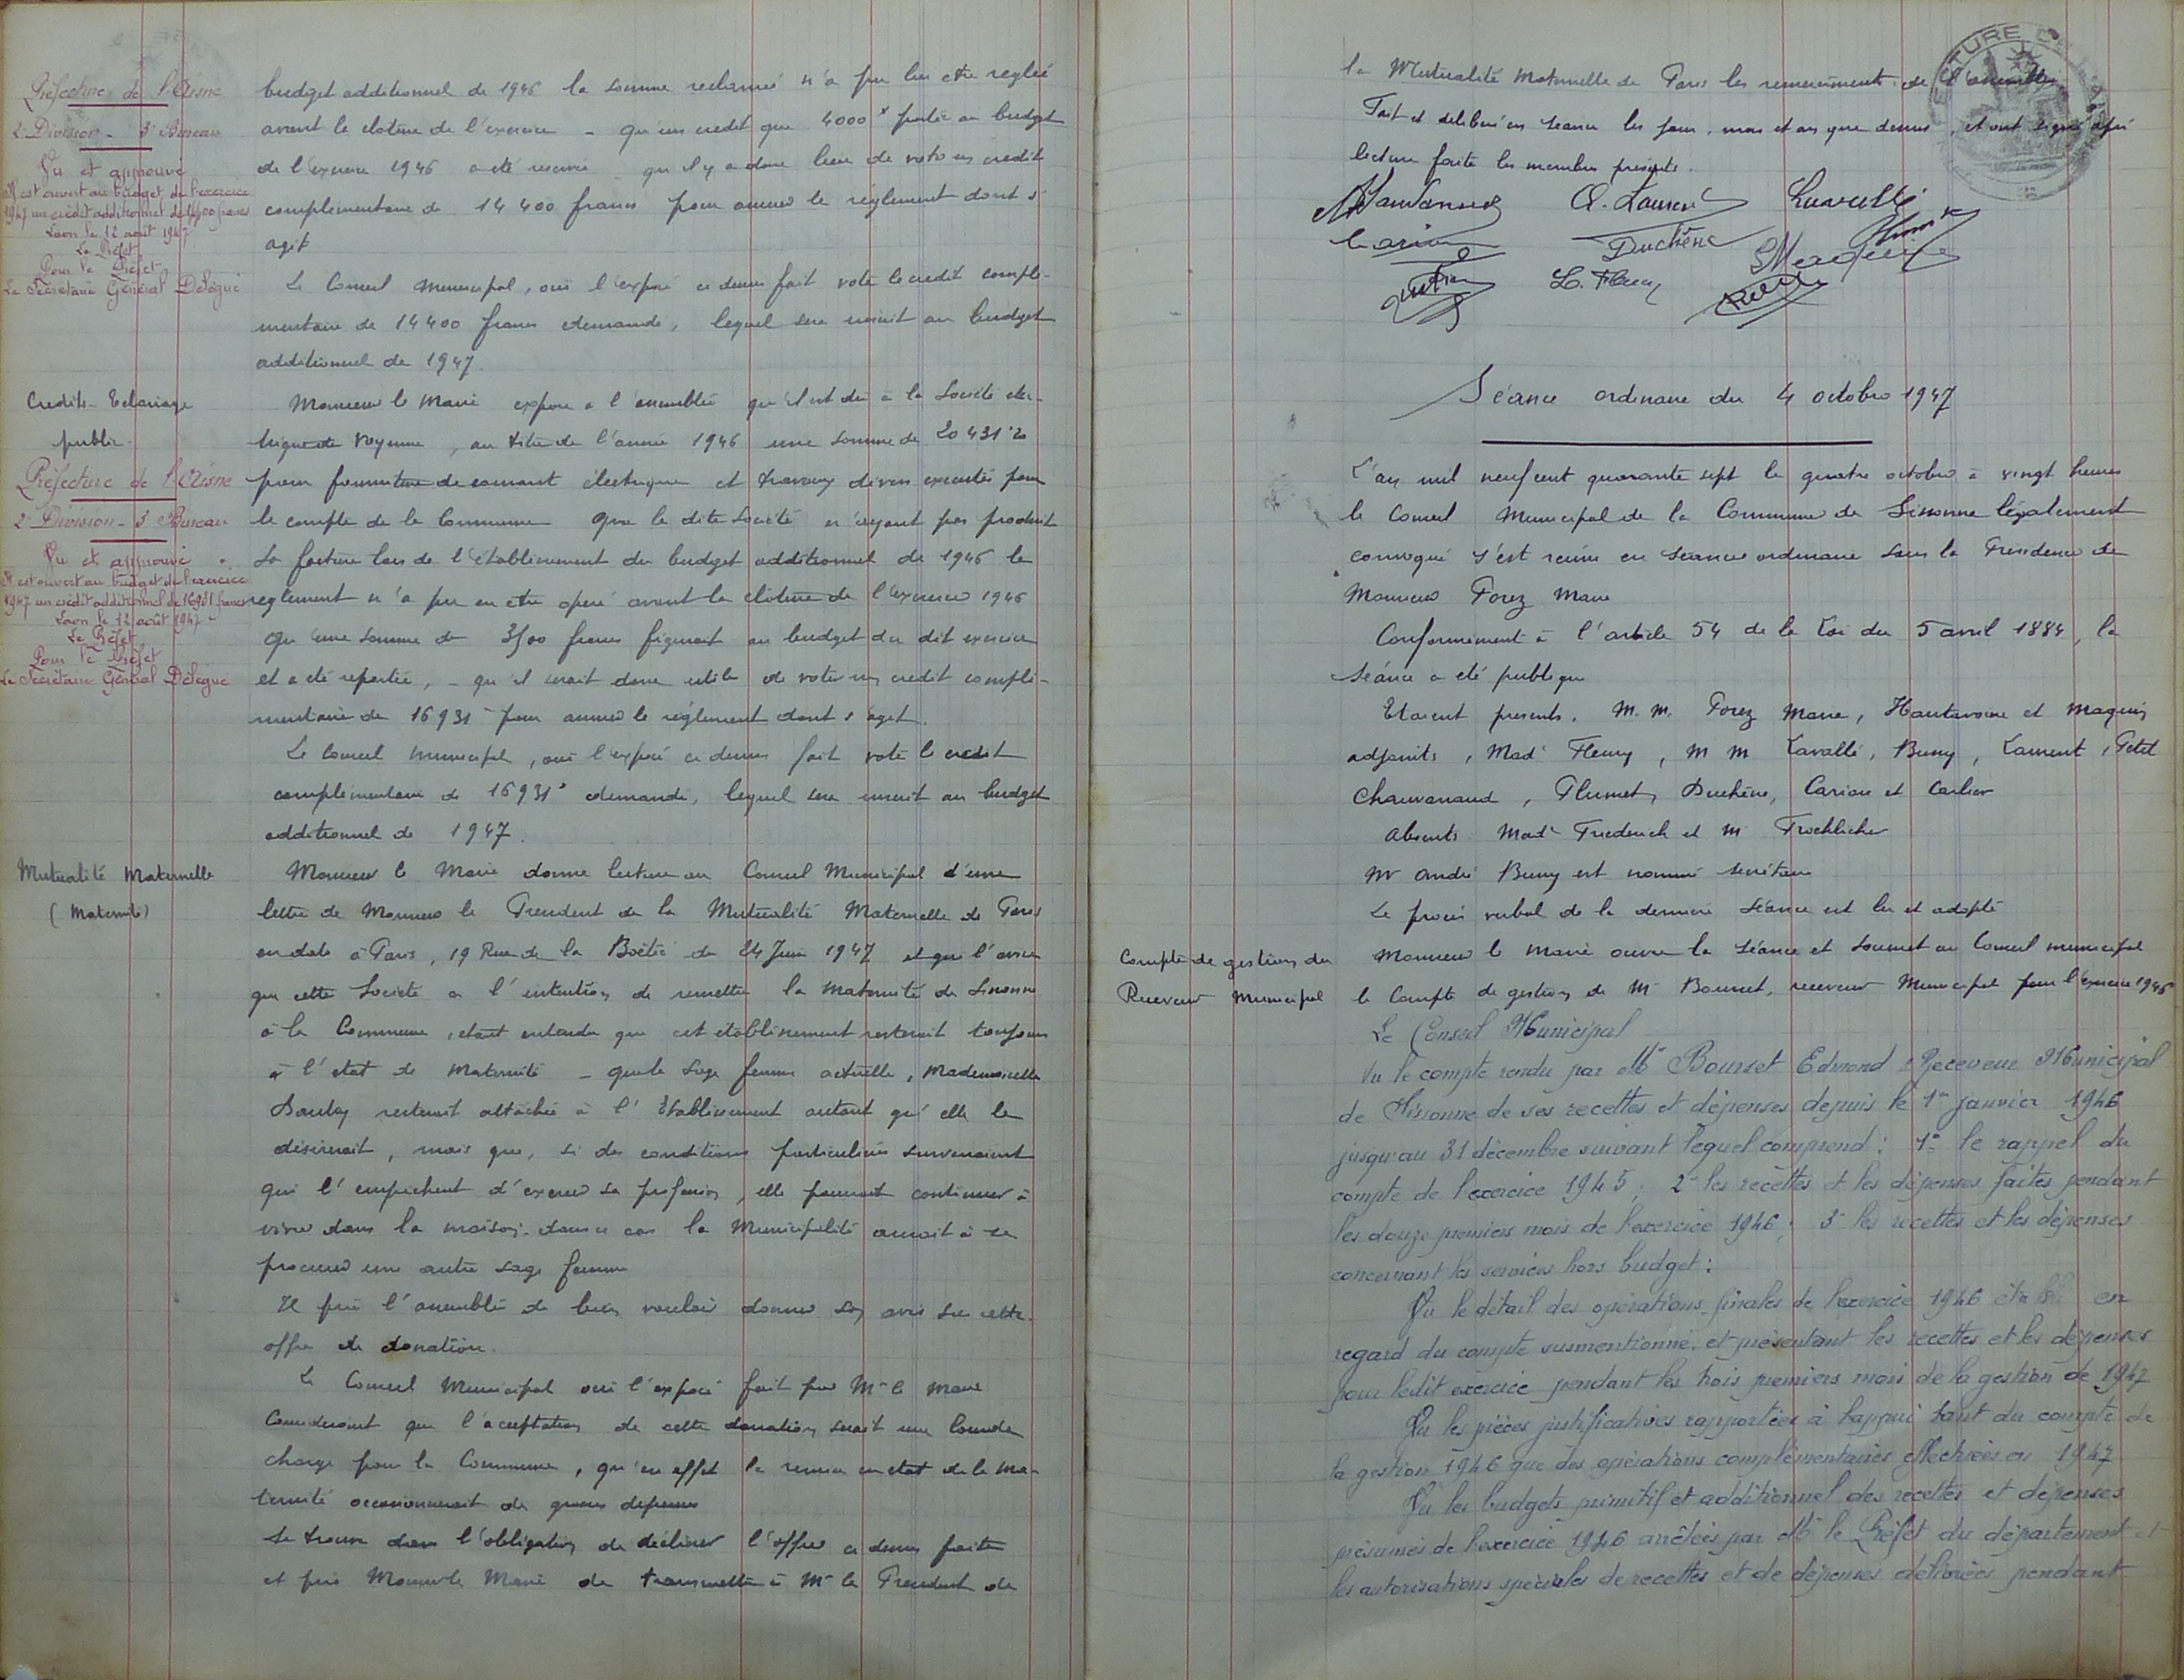 Préfecture de l'Aisne
2e Division - 3e Bureau
Vu et approuvé
Il est ouvert au budget de l'exercice
1947 un crédit additionnel de 14400 francs
Laon le 12 août 1947
Le Préfet
Pour le Préfet
Le Secrétaire Général Délégué
budget additionnel de 1946 la somme réclamée n'a pu lui etre reglée
avant la cloture de l'exercice - qu'un credit que 4000 f porté au budget
de l'exercice 1946 a été réservé - qu'il y a donc lieu de voter un credit
complementaire de 14 400 francs pour assurer le réglement dont s'
agit
Le Conseil Municipal, oui l'exposé ci dessus fait vote le credit complé-
mentaire de 14400 francs demandé, lequel sera inscrit au budget
additionnel de 1947
Credits Eclairage
public
Préfecture de l'Aisne
2e Division - 3e Bureau
Vu et approuvé
Il est ouvert au budget de l'exercice
1947 un crédit additionnel de 16931 francs
Laon le 12 août 1947
Le Préfet
Pour le Préfet
Le Secrétaire Général Délégué
Monsieur le Maire expose a l'assemblée qu'il est du à la Société élec-
trique de Voyenne, au titre de l'année 1946 une somme de 20431 f 20
pour fourniture de courant électrique et travaux divers executés pour
le compte de la Commune que la dite Société n'ayant pas produit
sa facture lors de l'établissement du budget additionnel de 1946 le
reglement n'a pu en etre operé avant la cloture de l'exercice 1946
qu'une somme de 3500 francs figurait au budget du dit exercice
et a été reportée, - qu'il serait donc utile de voter un credit complé-
mentaire de 16931 f pour assurer le réglement dont s'agit.
Le Conseil Municipal, oui l'exposé ci dessus fait vote le credit
complémentaire de 16931 f demandé, lequel sera inscrit au budget
additionnel de 1947.
Mutualité Maternelle
(Maternité)
Monsieur le Maire donne lecture au Conseil Municipal d'une
lettre de Monsieur le President de la Mutualité Maternelle de Paris
en date à Paris, 19 Rue de la Boëtie du 24 Juin 1947 et qui l'avise
que cette Société a l'intention de remettre la Maternité de Sissonne
à la Commune, étant entendu que cet etablissement resterait toujours
à l'etat de Maternité - que la Sage femme actuelle, Mademoiselle
resterait attachée à l'Etablissement autant qu'elle le
désirerait, mais que, si des conditions particulières survenaient
qui l'empêchent d'exercer sa profession, elle pourrait continuer à
vivre dans la maison. dans ce cas la Municipalité aurait à se
procurer une autre sage femme
Il prie l'assemblée de bien vouloir donner son avis sur cette
offre de donation.
Le Conseil Municipal oui l'exposé fait par Mr le Maire
Considerant que l'acceptation de cette donation serait une lourde
charge pour la Commune, qu'en effet la remise en etat de la Ma-
ternité occasionnerait de grosses depenses
Se trouve dans l'obligation de décliner l'offre ci dessus faite
et prie Monsieur le Maire de transmettre à Mr le President de
la Mutualité Maternelle de Paris les remerciements de l'assemblée.
Fait et deliberé en séance les jour, mois et an que dessus, et ont signé après
lecture faite les membres presents.
A. Laurent Lavallé
Carion Duchêne
L. Fleury
Séance ordinaire du 4 octobre 1947
L'an mil neuf cent quarante sept le quatre octobre à vingt heures
le Conseil Municipal de la Commune de Sissonne légalement
convoqué s'est réuni en séance ordinaire sous la Présidence de
Monsieur Forez Maire
Conformément à l'article 54 de la Loi du 5 avril 1884, la
séance a été publique
Etaient presents. M.M. Forez Maire, Hautavoine et Maquin
adjoints, Made Fleury, M M Lavallé, Buny, Laurent, Petit
Chauvanaud, Plumet, Duchêne, Carion et Carlier
Absents Made Friederich et M Froehlicher
Mr André Buny est nommé secrétaire
Le procès verbal de la derniere séance est lu et adopté
Compte de gestion du
Receveur Municipal
Monsieur le Maire ouvre la séance et soumet au Conseil municipal
le Compte de gestion de Mr Bourset, receveur Municipal pour l'exercice 1946
Le Conseil Municipal
Vu le compte rendu par Mr Bourset Edmond Receveur Municipal
de Sissonne de ses recettes et dépenses depuis le 1er janvier 1946
jusqu'au 31 décembre suivant lequel comprend : 1° le rappel du
compte de l'exercice 1945 ; 2° les recettes et les dépenses faites pendant
les douze premiers mois de l'exercice 1946 ; 3° les recettes et les dépenses
concernant les services hors budget :
Vu le détail des opérations finales de l'exercice 1946 établi en
regard du compte susmentionné, et présentant les recettes et les dépenses
pour ledit exercice pendant les trois premiers mois de la gestion de 1947
Vu les pièces justificatives rapportées à l'appui tant du compte de
la gestion 1946 que des opérations complémentaires effectuées en 1947
Vu les budgets primitif et additionnel des recettes et dépenses
présumés de l'exercice 1946 arrêtés par Mr le Préfet du département et
les autorisations spéciales de recettes et de dépenses délivrées pendant